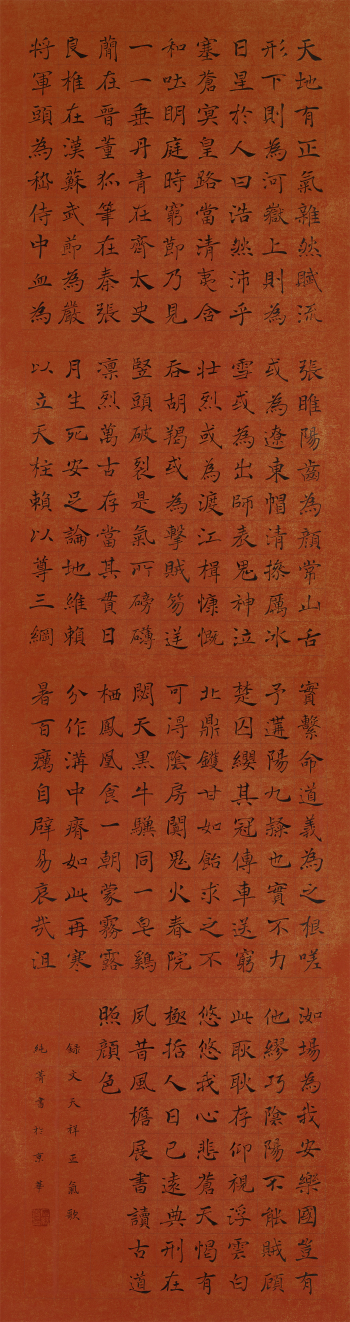 天地有正氣雜然賦流
形下則為河嶽上則為
日星於人曰浩然沛乎
塞蒼冥皇路當清夷含
和吐明庭時窮節乃見
一一垂丹青在齊太史
簡在晉董狐筆在秦張
良椎在漢蘇武節為嚴
將軍頭為嵇侍中血為
張睢陽齒為顏常山舌
或為遼東帽清操厲冰
雪或為出師表鬼神泣
壯烈或為渡江楫慷慨
吞胡羯或為擊賊笏逆
豎頭破裂是氣所磅礴
凜烈萬古存當其貫日
月生死安足論地維賴
以立天柱賴以尊三綱
實繫命道義為之根嗟
予遘陽九隸也實不力
楚囚纓其冠傳車送窮
北鼎鑊甘如飴求之不
可得陰房闃鬼火春院
閟天黑牛驥同一皂鷄
栖鳳凰食一朝蒙霧露
分作溝中瘠如此再寒
暑百癘自辟易哀哉沮
洳場為我安樂國豈有
他繆巧陰陽不能賊顧
此耿耿存仰視浮雲白
悠悠我心悲蒼天愒有
極哲人日已遠典刑在
夙昔風檐展書讀古道
照顏色
錄文天祥正氣歌
純青書於京華